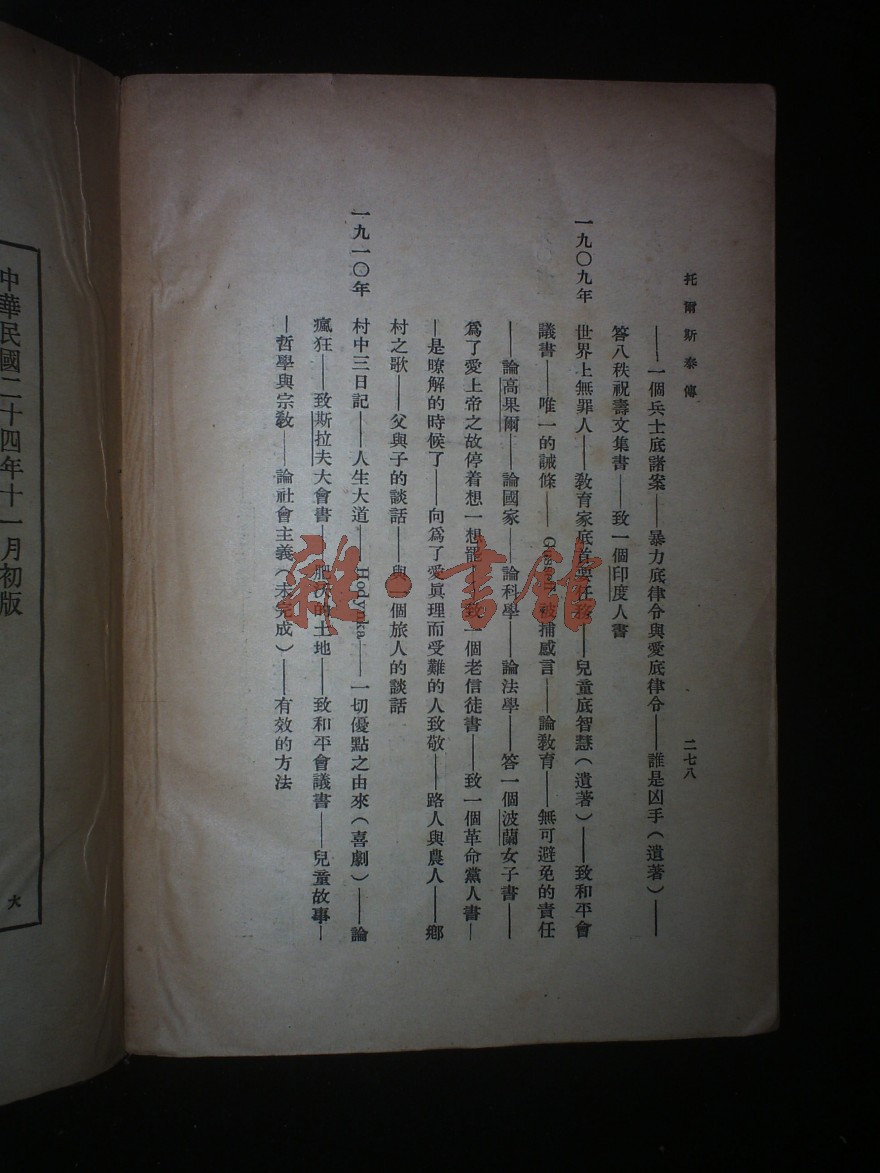 托爾斯泰傳
二七八
——一個兵士底諸案——暴力底律令與愛底律令——誰是凶手（遺著）——
答八秩祝壽文集書——致一個印度人書
一九〇九年 世界上無罪人——教育家底首要任務——兒童底智慧（遺著）——致和平會
議書——唯一的誡條——被捕感言——論教育——無可避免的責任
——論高果爾——論國家——論科學——論法學——答一個波蘭女子書——
爲了愛上帝之故停着想一想罷——致一個老信徒書——致一個革命黨人書—
—是瞭解的時候了——向爲了愛眞理而受難的人致敬——路人與農人——鄉
村之歌——父與子的談話——與一個旅人的談話
一九一〇年 村中三日記——人生大道——Hodynka——一切優點之由來（喜劇）——論
瘋狂——致斯拉夫大會書——肥沃的土地——致和平會議書——兒童故事—
—哲學與宗教——論社會主義（未完成）——有效的方法
中華民國二十四年十一月初版
大
雜·書館